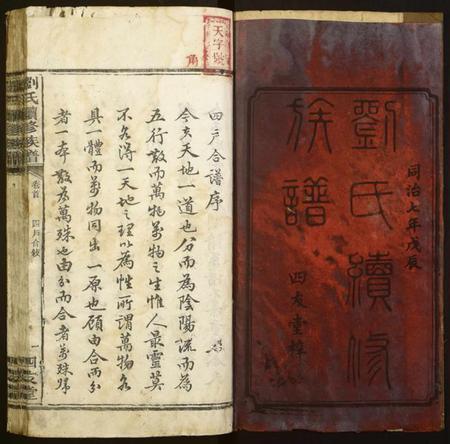 同治七年戊辰
劉氏續修
族譜
四友堂梓
天字號
四戶合譜序
今夫天地一道也分而為陰陽流而為
五行散而萬物萬物之生惟人最靈莫
不各得一天地之理以為性所謂萬物各
具一體而萬物同出一原也顧由合而分
者一本散為萬殊也由分而合者萬殊
劉氏續修族譜
卷首
四戶合敘
一
四友堂